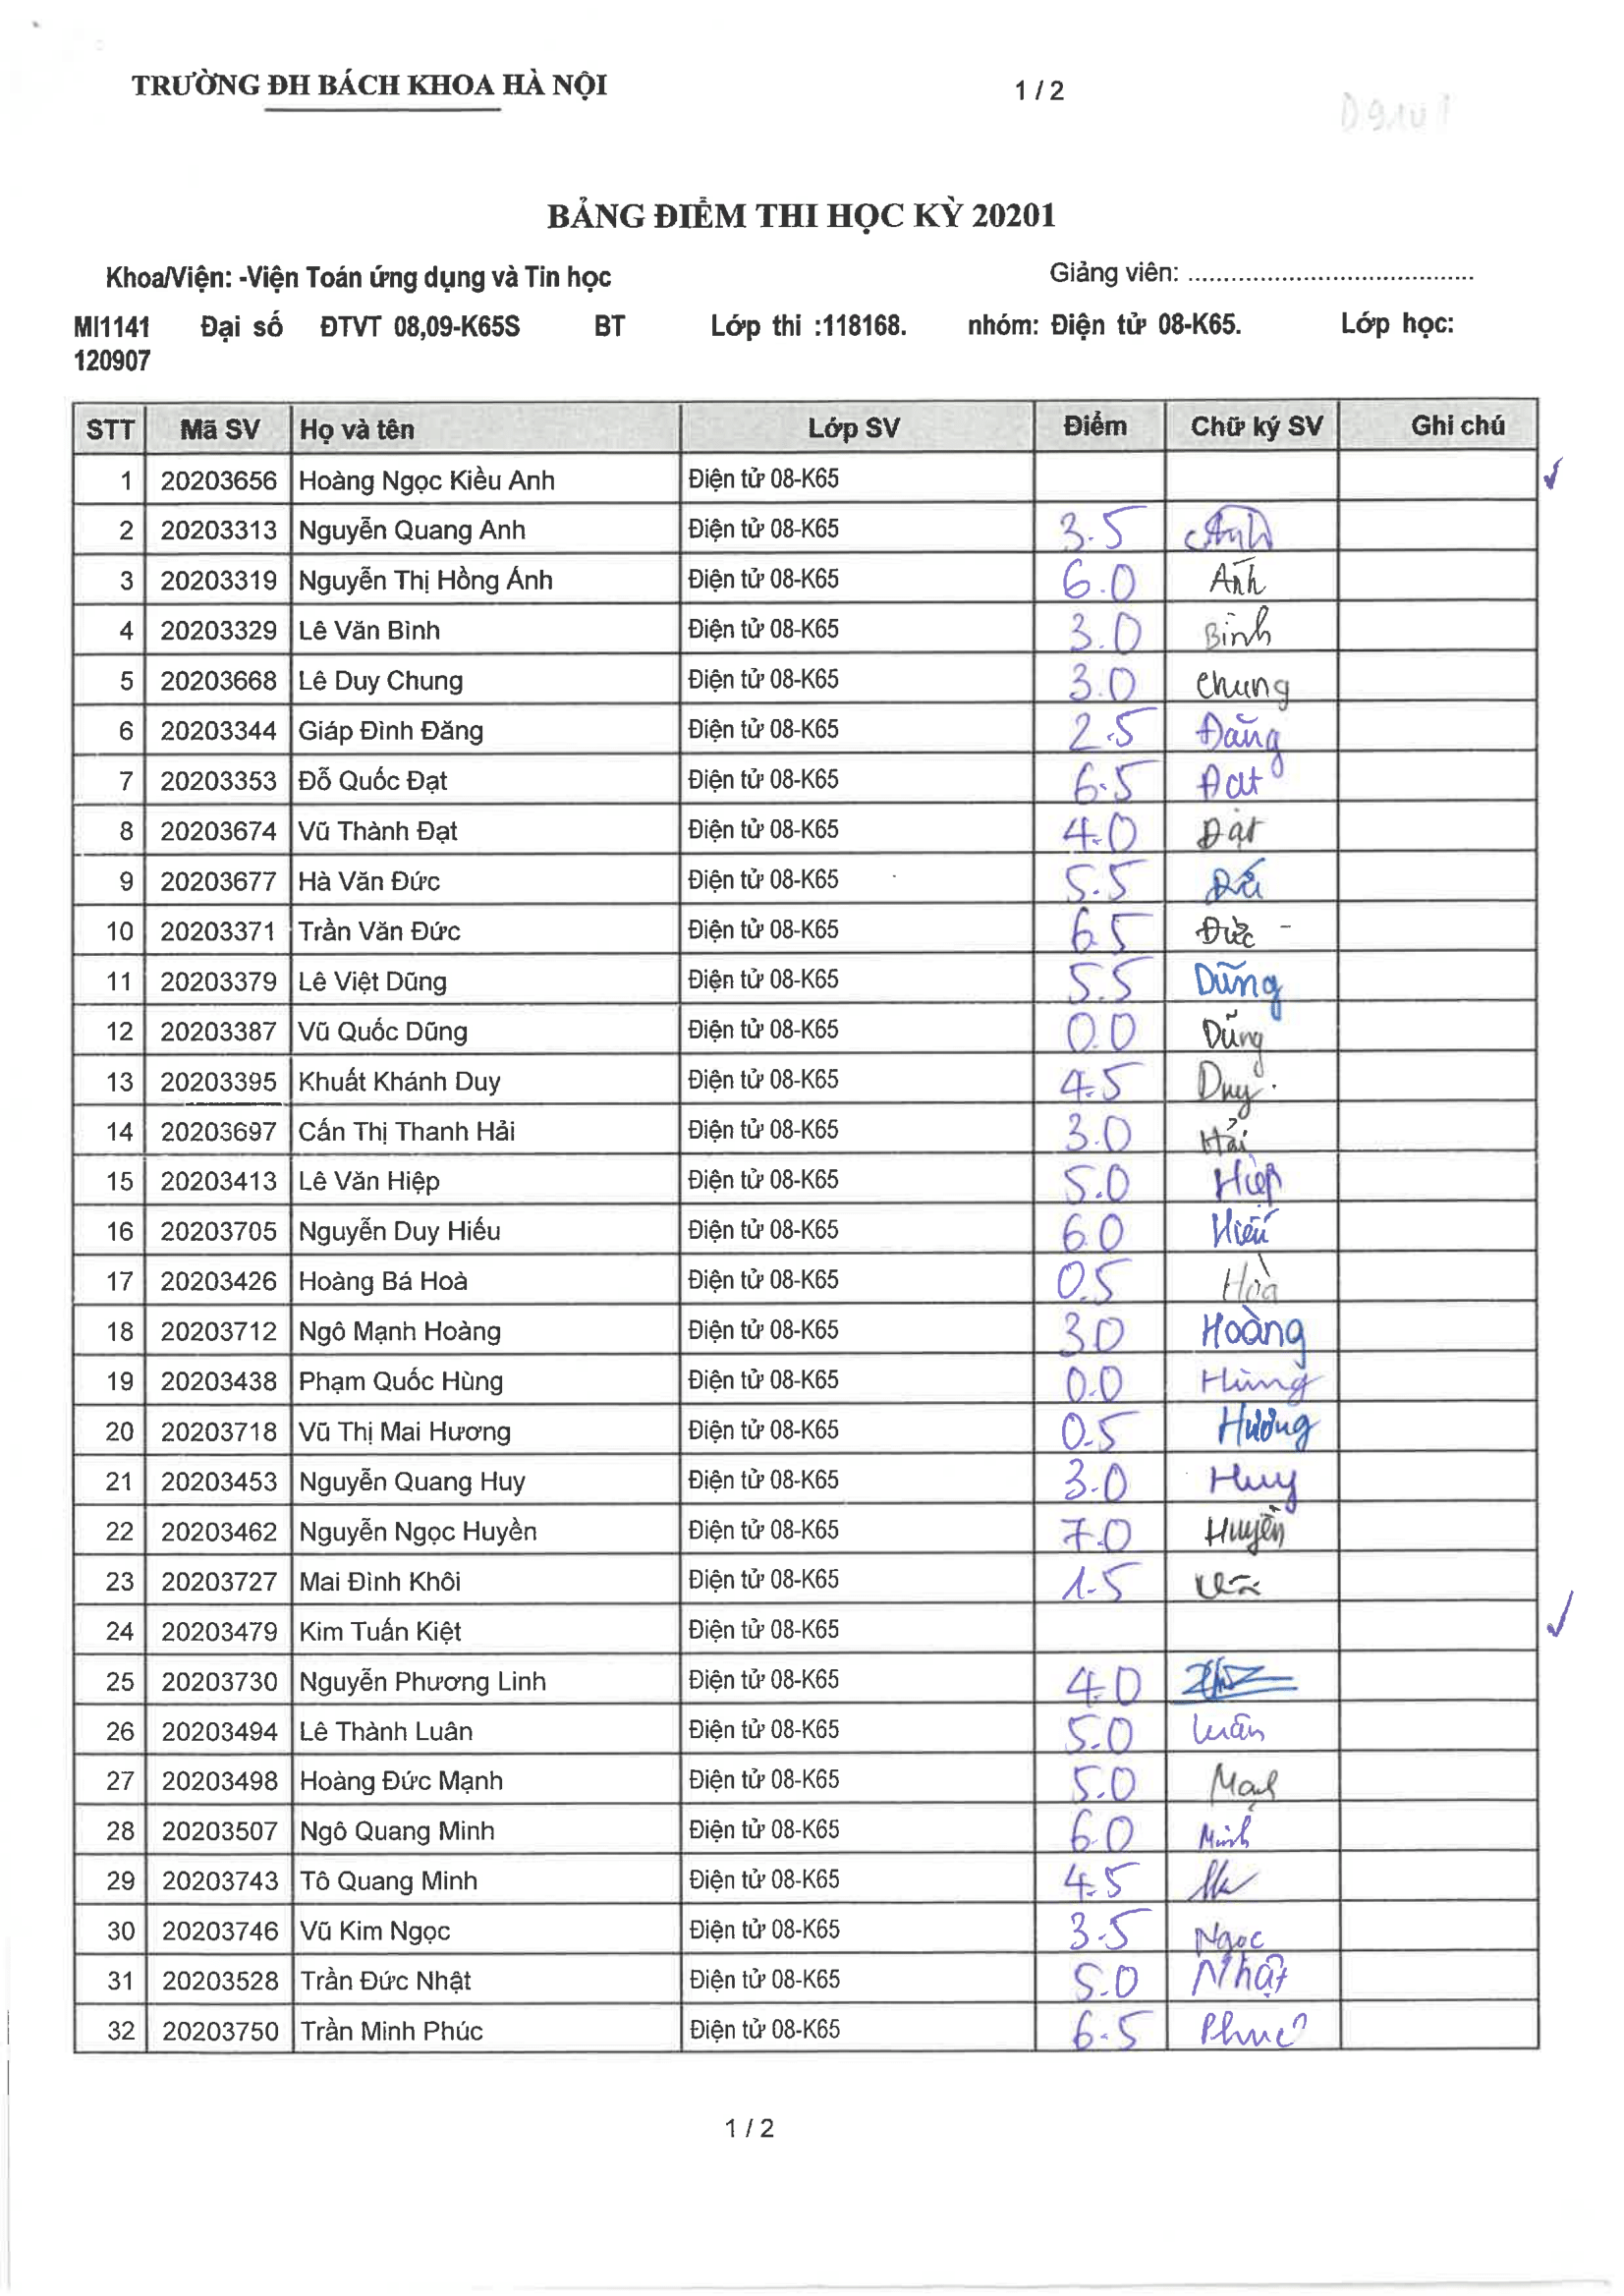 TRƯỜNG ĐH BÁCH KHOA HÀ NỘI 1 / 2
BẢNG ĐIỂM THI HỌC KỲ 20201
Khoa/Viện: -Viện Toán ứng dụng và Tin học Giảng viên: ........................................
MI1141 Đại số ĐTVT 08,09-K65S BT Lớp thi :118168. nhóm: Điện tử 08-K65. Lớp học:
120907
STT Mã SV Họ và tên Lớp SV Điểm Chữ ký SV Ghi chú
1 20203656 Hoàng Ngọc Kiều Anh Điện tử 08-K65 ✓
2 20203313 Nguyễn Quang Anh Điện tử 08-K65 3.5 Anh
3 20203319 Nguyễn Thị Hồng Ánh Điện tử 08-K65 6.0 Ánh
4 20203329 Lê Văn Bình Điện tử 08-K65 3.0 Bình
5 20203668 Lê Duy Chung Điện tử 08-K65 3.0 Chung
6 20203344 Giáp Đình Đăng Điện tử 08-K65 2.5 Đăng
7 20203353 Đỗ Quốc Đạt Điện tử 08-K65 6.5 Đạt
8 20203674 Vũ Thành Đạt Điện tử 08-K65 4.0 Đạt
9 20203677 Hà Văn Đức Điện tử 08-K65 5.5
10 20203371 Trần Văn Đức Điện tử 08-K65 6.5 Đức
11 20203379 Lê Việt Dũng Điện tử 08-K65 5.5 Dũng
12 20203387 Vũ Quốc Dũng Điện tử 08-K65 0.0 Dũng
13 20203395 Khuất Khánh Duy Điện tử 08-K65 4.5 Duy
14 20203697 Cấn Thị Thanh Hải Điện tử 08-K65 3.0 Hải
15 20203413 Lê Văn Hiệp Điện tử 08-K65 5.0 Hiệp
16 20203705 Nguyễn Duy Hiếu Điện tử 08-K65 6.0 Hiếu
17 20203426 Hoàng Bá Hoà Điện tử 08-K65 0.5 Hòa
18 20203712 Ngô Mạnh Hoàng Điện tử 08-K65 3.0 Hoàng
19 20203438 Phạm Quốc Hùng Điện tử 08-K65 0.0 Hùng
20 20203718 Vũ Thị Mai Hương Điện tử 08-K65 0.5 Hương
21 20203453 Nguyễn Quang Huy Điện tử 08-K65 3.0 Huy
22 20203462 Nguyễn Ngọc Huyền Điện tử 08-K65 7.0 Huyền
23 20203727 Mai Đình Khôi Điện tử 08-K65 1.5
24 20203479 Kim Tuấn Kiệt Điện tử 08-K65 ✓
25 20203730 Nguyễn Phương Linh Điện tử 08-K65 4.0
26 20203494 Lê Thành Luân Điện tử 08-K65 5.0 Luân
27 20203498 Hoàng Đức Mạnh Điện tử 08-K65 5.0 Mạnh
28 20203507 Ngô Quang Minh Điện tử 08-K65 6.0 Minh
29 20203743 Tô Quang Minh Điện tử 08-K65 4.5
30 20203746 Vũ Kim Ngọc Điện tử 08-K65 3.5 Ngọc
31 20203528 Trần Đức Nhật Điện tử 08-K65 5.0 Nhật
32 20203750 Trần Minh Phúc Điện tử 08-K65 6.5 Phúc
1 / 2